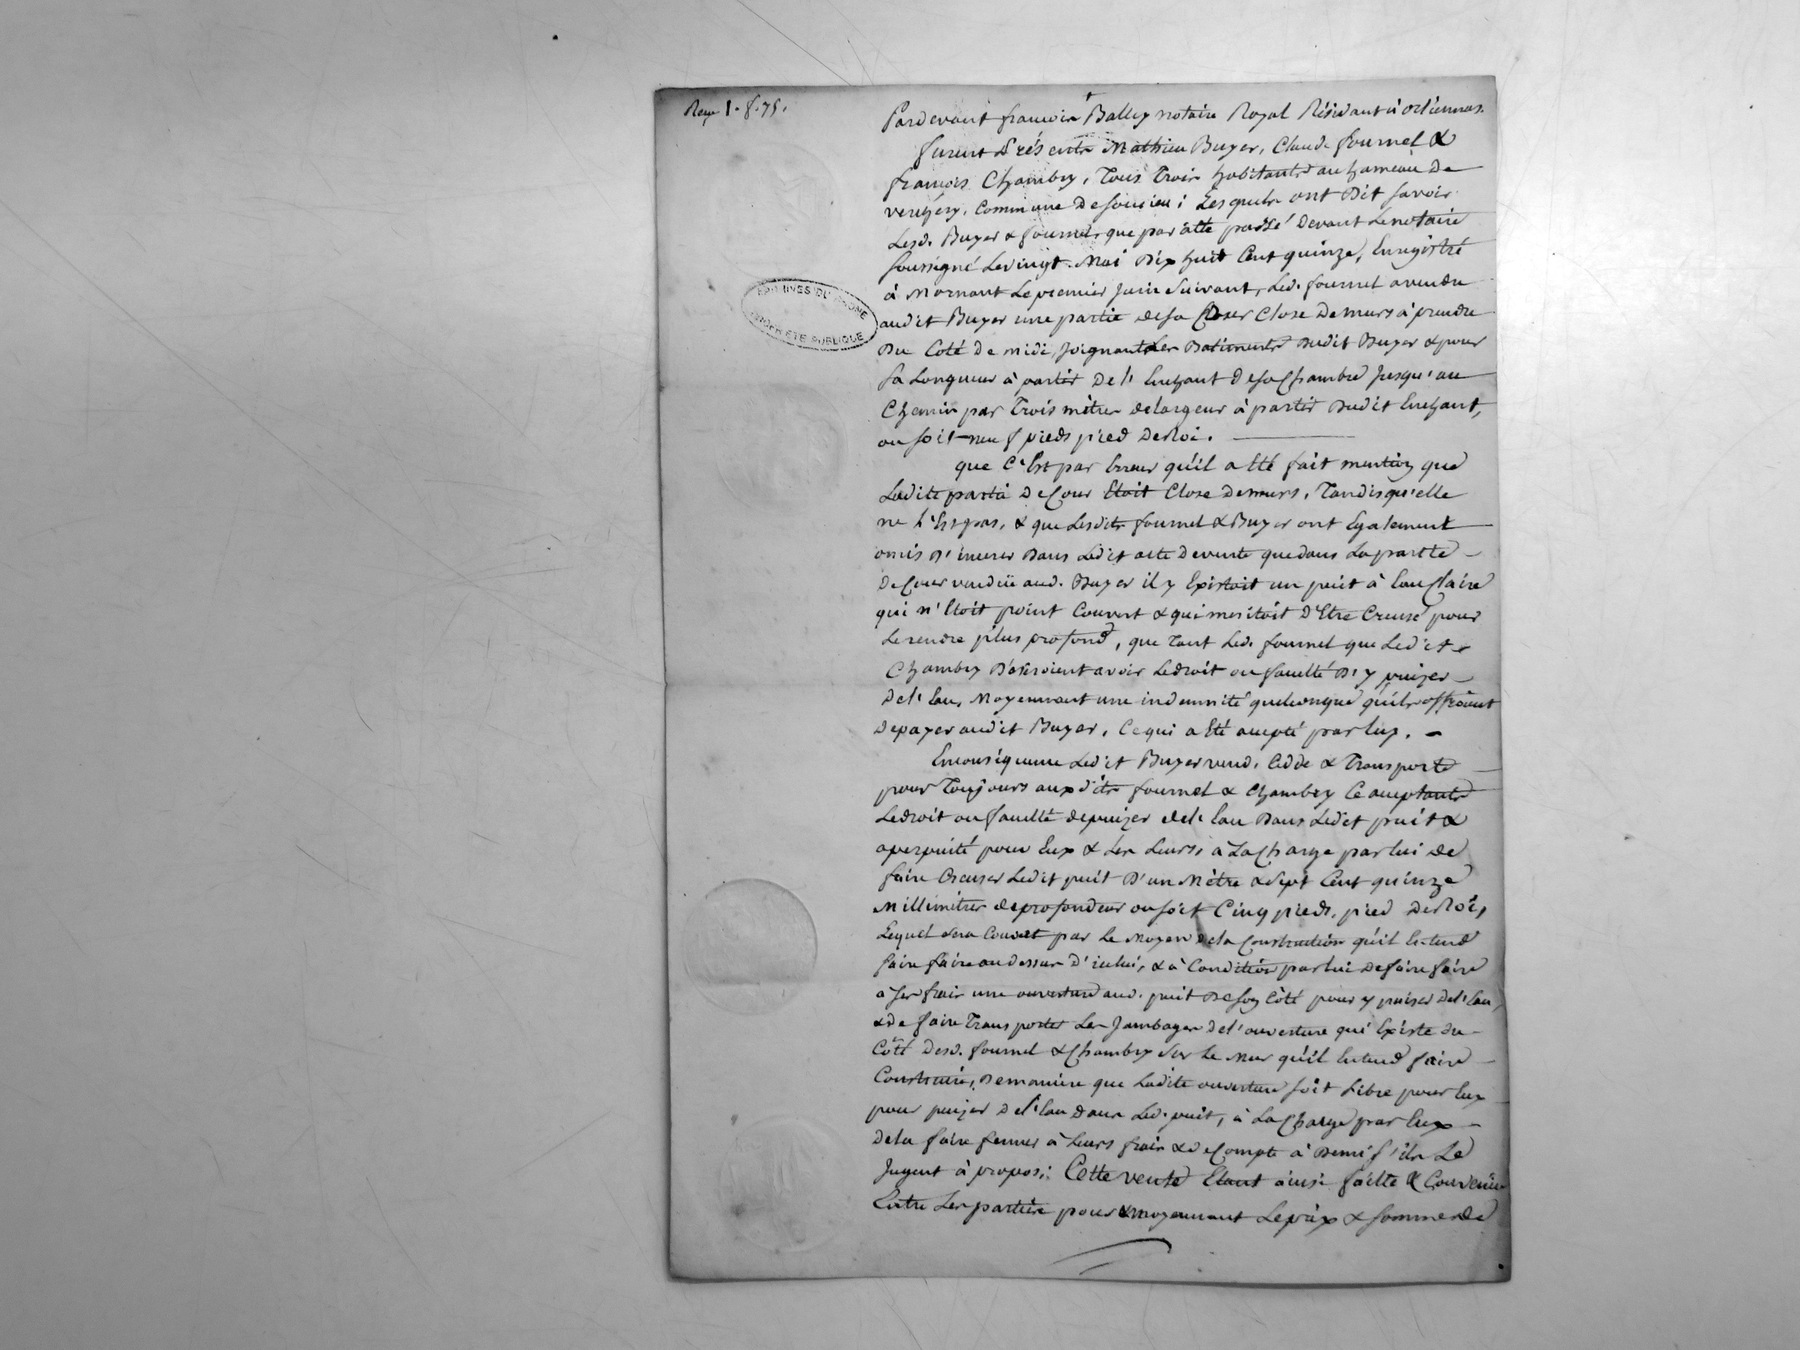 Reçu 1. f. 75.
Pardevant françois Balley notaire Royal Résidant à orliennas.
furent Présents Mathieu Buyer, Claude fournel &
françois Chambry, Tous Trois habitants au hameau De
verchery, Commune De soucieu ; Lesquels ont Dit savoir
Lesd. Buyer & fournel, que par acte passé Devant Le notaire
soussigné Le vingt Mai Dix huit Cent quinze, Enregistré
à Mornant Le premier Juin Suivant, Led. fournel a vendu
audit Buyer une partie de sa Cour Close De murs à prendre
Du Coté De midi, Joignant Les Batiments Dudit Buyer & pour
sa Longueur à partir De l' Enchant De sa Chambre Jusqu'au
Chemin par Trois mètres de largeur à partir Dudit Enchant,
ou soit neuf pieds pied De Roi.
que C'Est par Erreur qu'il a Eté fait mention que
Ladite partie De Cour Etoit Close De murs, Tandis qu'elle
ne l'Est pas, & que Lesdits fournel & Buyer ont Egalement
omis D'inserer Dans Ledit acte De vente que dans La partie
De Cour vendüe aud. Buyer il y Existoit un puit à Eau Claire
qui n'Etoit point Couvert & qui meritoit D'Etre Creusé pour
Le rendre plus profond, que Tant Led. fournel que Ledit
Chambry Désiroient avoir Le droit ou faculté D'y puizer
De l'Eau, Moyennant une indemnité quelconque qu'ils offroient
De payer audit Buyer, Ce qui a Eté accepté par Luy.
En conséquence Ledit Buyer vend, Cedde & Transporte
pour Toujours aux dits fournel & Chambry Ce acceptants
Le droit ou faculté de puizer de l'Eau Dans Ledit puit &
a perpuité pour Eux & Les Leurs, à La Charge par lui De
faire Creuser Ledit puit D'un Mètre & Sept Cent quinze
Millimètres de profondeur ou soit Cinq pieds, pied De Roi,
Lequel sera Couvert par Le Moyen de la Construction qu'il Entend
faire faire au dessus D'icelui, & à Condition par lui De faire faire
à Ses frais une ouverture aud. puit De son Côté pour y puiser De l'Eau,
& De faire Transporter Les Jambages De l'ouverture qui Existe du
Côté Desd. fournel & Chambry Sur Le Mur qu'il Entend faire
Construire, De maniere que Ladite ouverture soit Libre pour Eux
pour puizer De l'Eau dans Led. puit, à La Charge par Eux
De la faire fermer à Leurs frais & De Compte à Demi s'ils Le
Jugent à propos ; Cette vente Etant ainsi faitte & Convenüe
Entre Les parties pour & moyennant Le prix & somme de
ARCHIVES DU RHONE
PROPRIÉTÉ PUBLIQUE